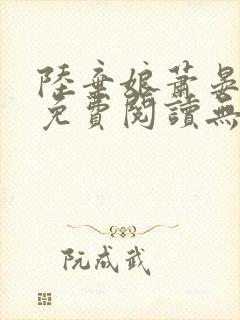 陸棄娘蕭晏
免費閱讀無
阮咸武